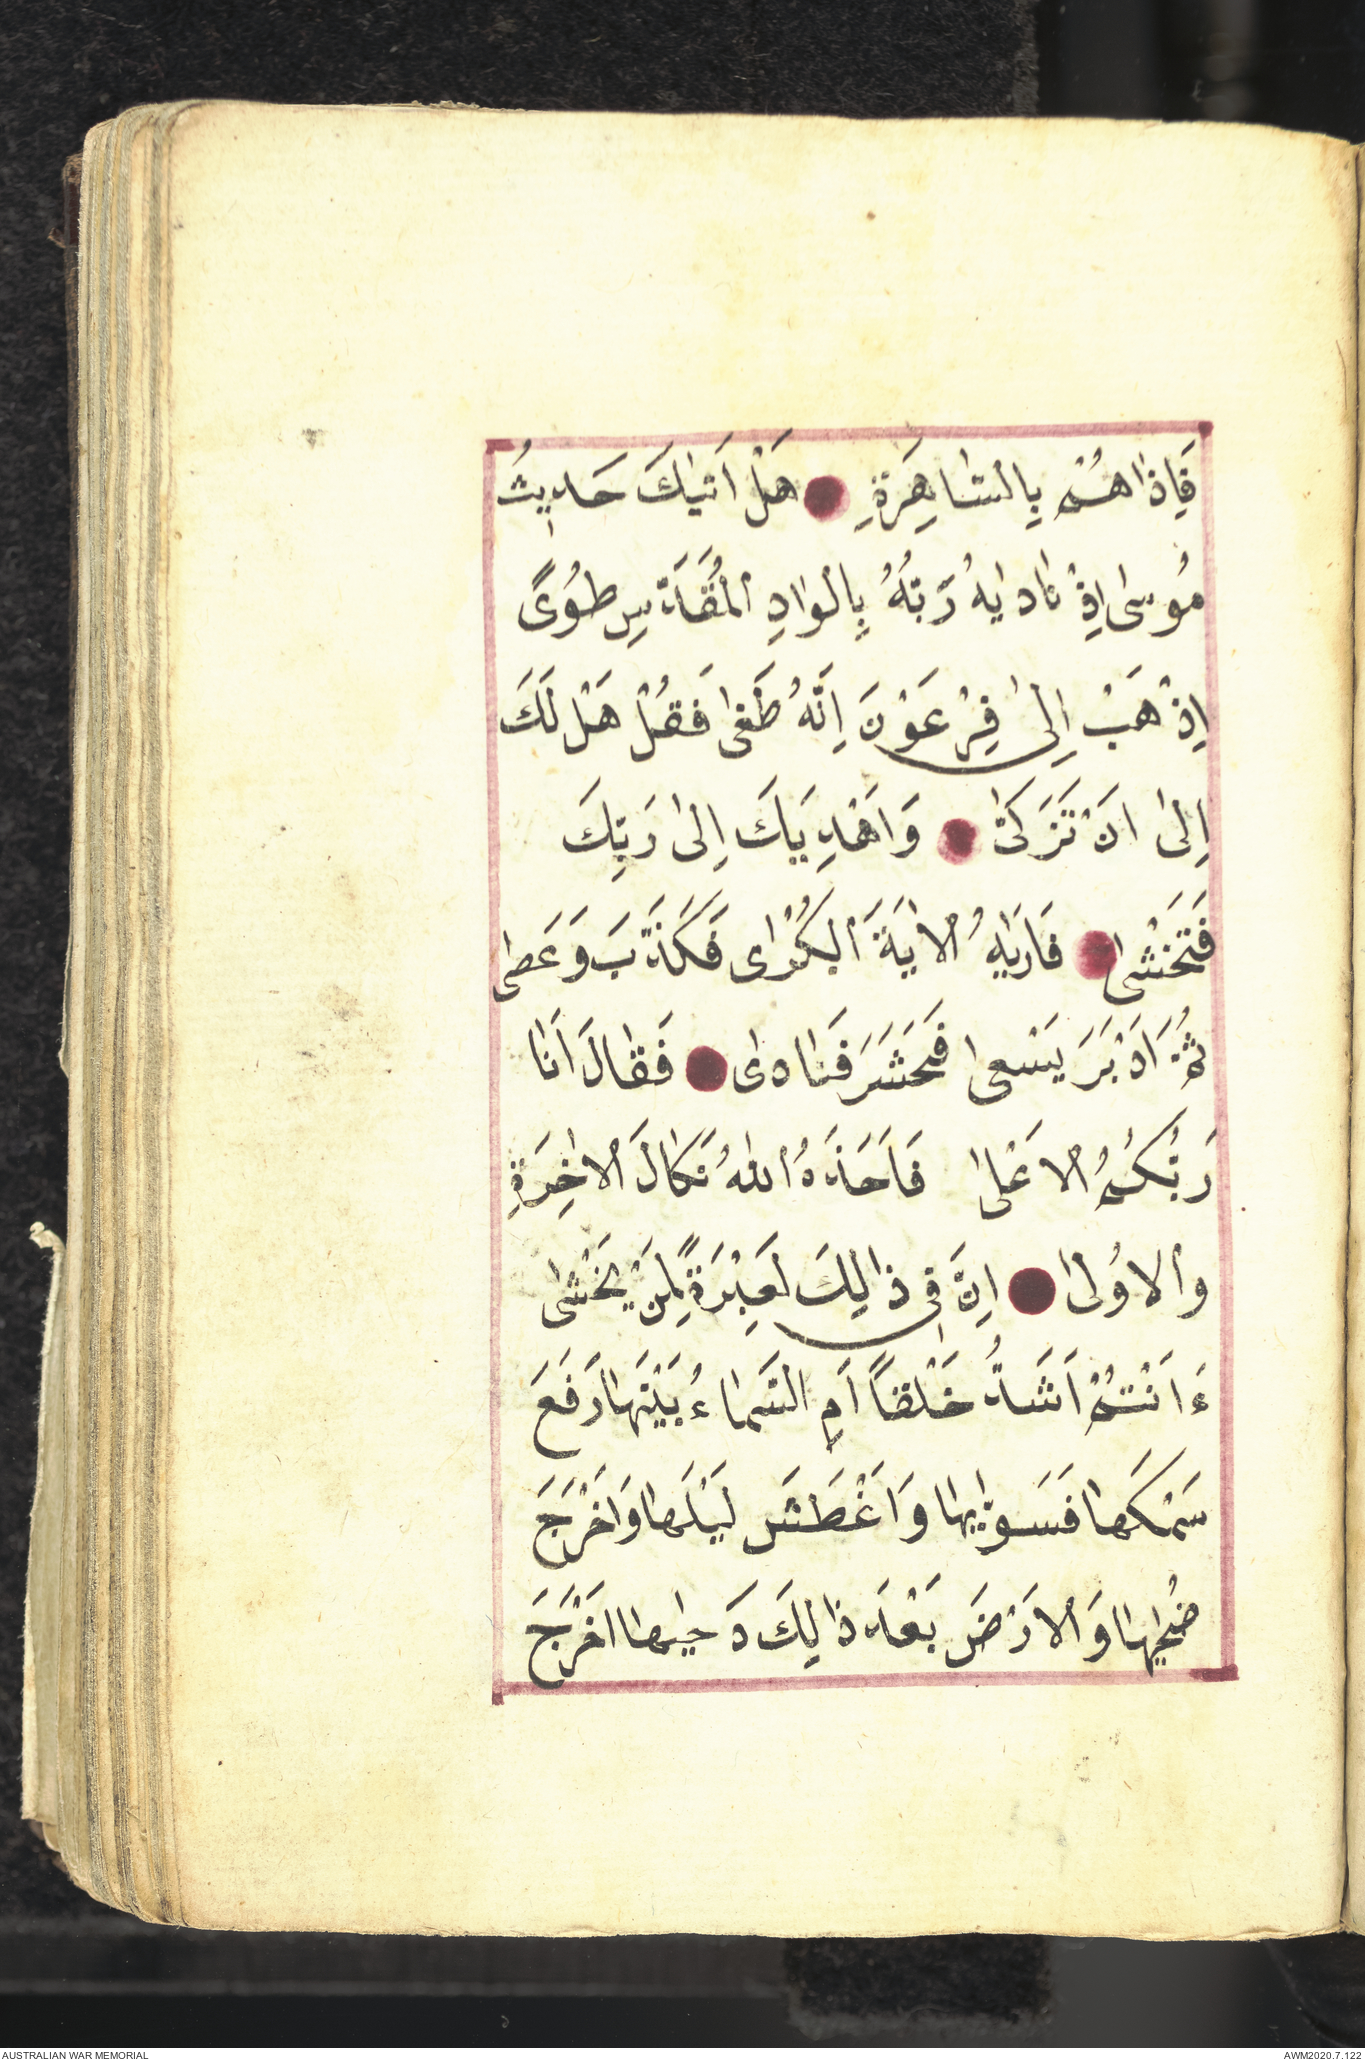 فَاِذٰا هُمْ بِالسّٰاهِرَةِ هَلْ اَتٰيكَ حَدٖيثُ
مُوسٰى اِذْ نٰادٰيهُ رَبُّهُ بِالْوٰادِ الْمُقَدَّسِ طُوًى
اِذْهَبْ اِلٰى فِرْعَوْنَ اِنَّهُ طَغٰى فَقُلْ هَلْ لَكَ
اِلٰى اَنْ تَزَكّٰى وَاَهْدِيَكَ اِلٰى رَبِّكَ
فَتَخْشٰى فَاَرٰيهُ الْاٰيَةَ الْكُبْرٰى فَكَذَّبَ وَعَصٰى
ثُمَّ اَدْبَرَ يَسْعٰى فَحَشَرَ فَنٰادٰى فَقٰالَ اَنَا
رَبُّكُمُ الْاَعْلٰى فَاَخَذَهُ اللّٰهُ نَكٰالَ الْاٰخِرَةِ
وَالْاُولٰى اِنَّ فٖى ذٰالِكَ لَعِبْرَةً لِمَنْ يَخْشٰى
ءَاَنْتُمْ اَشَدُّ خَلْقاً اَمِ السَّمٰاءُ بَنٰيهٰا رَفَعَ
سَمْكَهٰا فَسَوّٰيهٰا وَاَغْطَشَ لَيْلَهٰا وَاَخْرَجَ
ضُحٰيهٰا وَالْاَرْضَ بَعْدَ ذٰالِكَ دَحٰيهٰا اَخْرَجَ
AUSTRALIAN WAR MEMORIAL
AWM2020.7.122